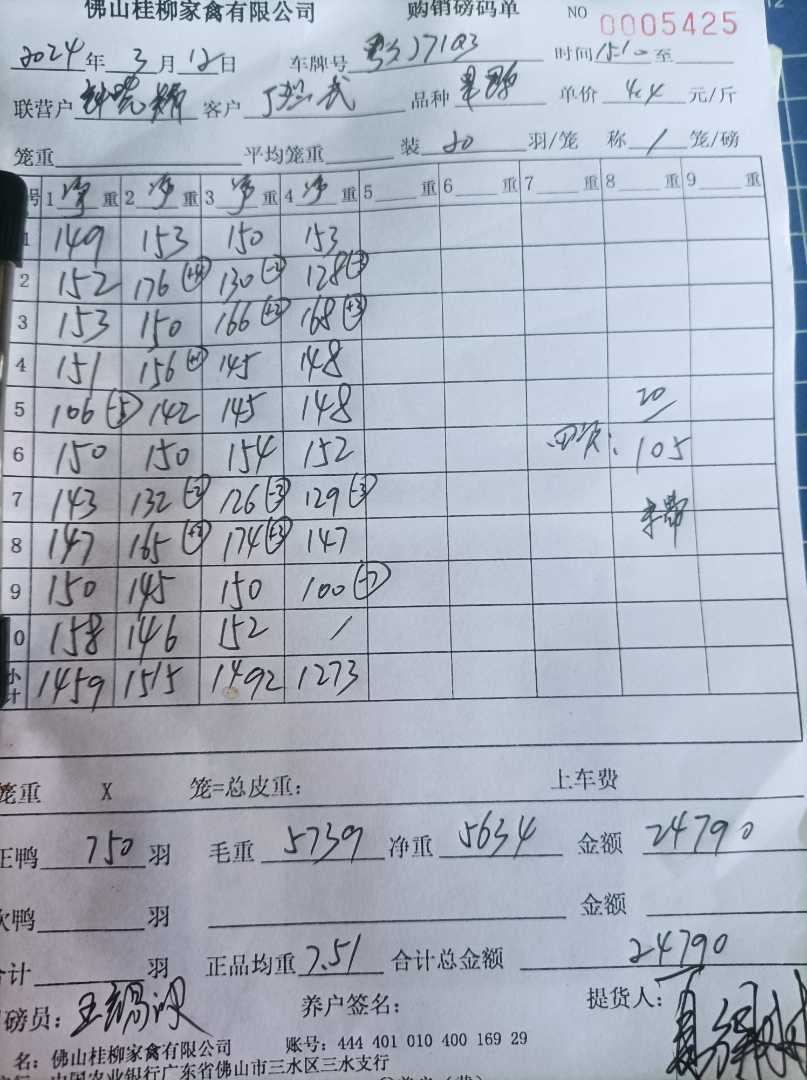 佛山桂柳家禽有限公司 购销磅码单 NO 0005425
2024年3月12日 车牌号 时间 至
联营户 客户 品种 单价 4.4 元/斤
笼重 平均笼重 装 20 羽/笼 称 1 笼/磅
号 1 净 重 2 净 重 3 净 重 4 净 重 5 重 6 重 7 重 8 重 9 重
1 149 153 150 153
2 152 176 (+4) 130 (-2) 128 (-3)
3 153 150 166 (+2) 168 (+3)
4 151 156 (+1) 145 148
5 106 (-5) 142 145 148 20
6 150 150 154 152 105
7 143 132 (-2) 126 (-3) 129 (-3)
8 147 165 (+2) 174 (+3) 147
9 150 145 150 100 (-7)
0 158 146 152 /
小计 1459 1515 1492 1273
笼重 X 笼=总皮重: 上车费
正鸭 750 羽 毛重 5739 净重 5634 金额 24790
次鸭 羽 金额
合计 羽 正品均重 7.51 合计总金额 24790
磅员: 养户签名: 提货人:
名: 佛山桂柳家禽有限公司 账号: 444 401 010 400 169 29
中国农业银行广东省佛山市三水区三水支行